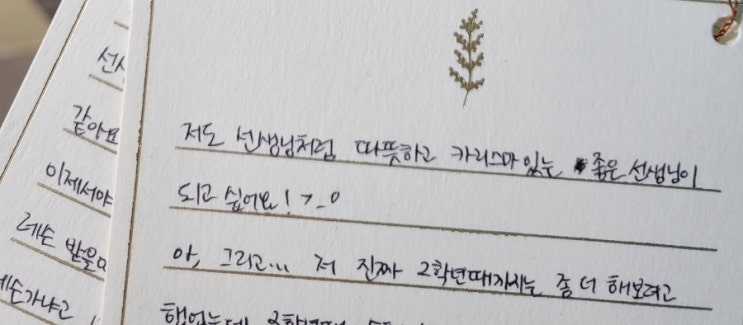 선생
같아요
이제서야
레슨 받을
레슨가냐고
저도 선생님처럼 따뜻하고 카리스마있는 좋은 선생님이
되고 싶어요! >_0
아, 그리고... 저 진짜 2학년때까지는 좀 더 해보려고
했었는데 2학년때